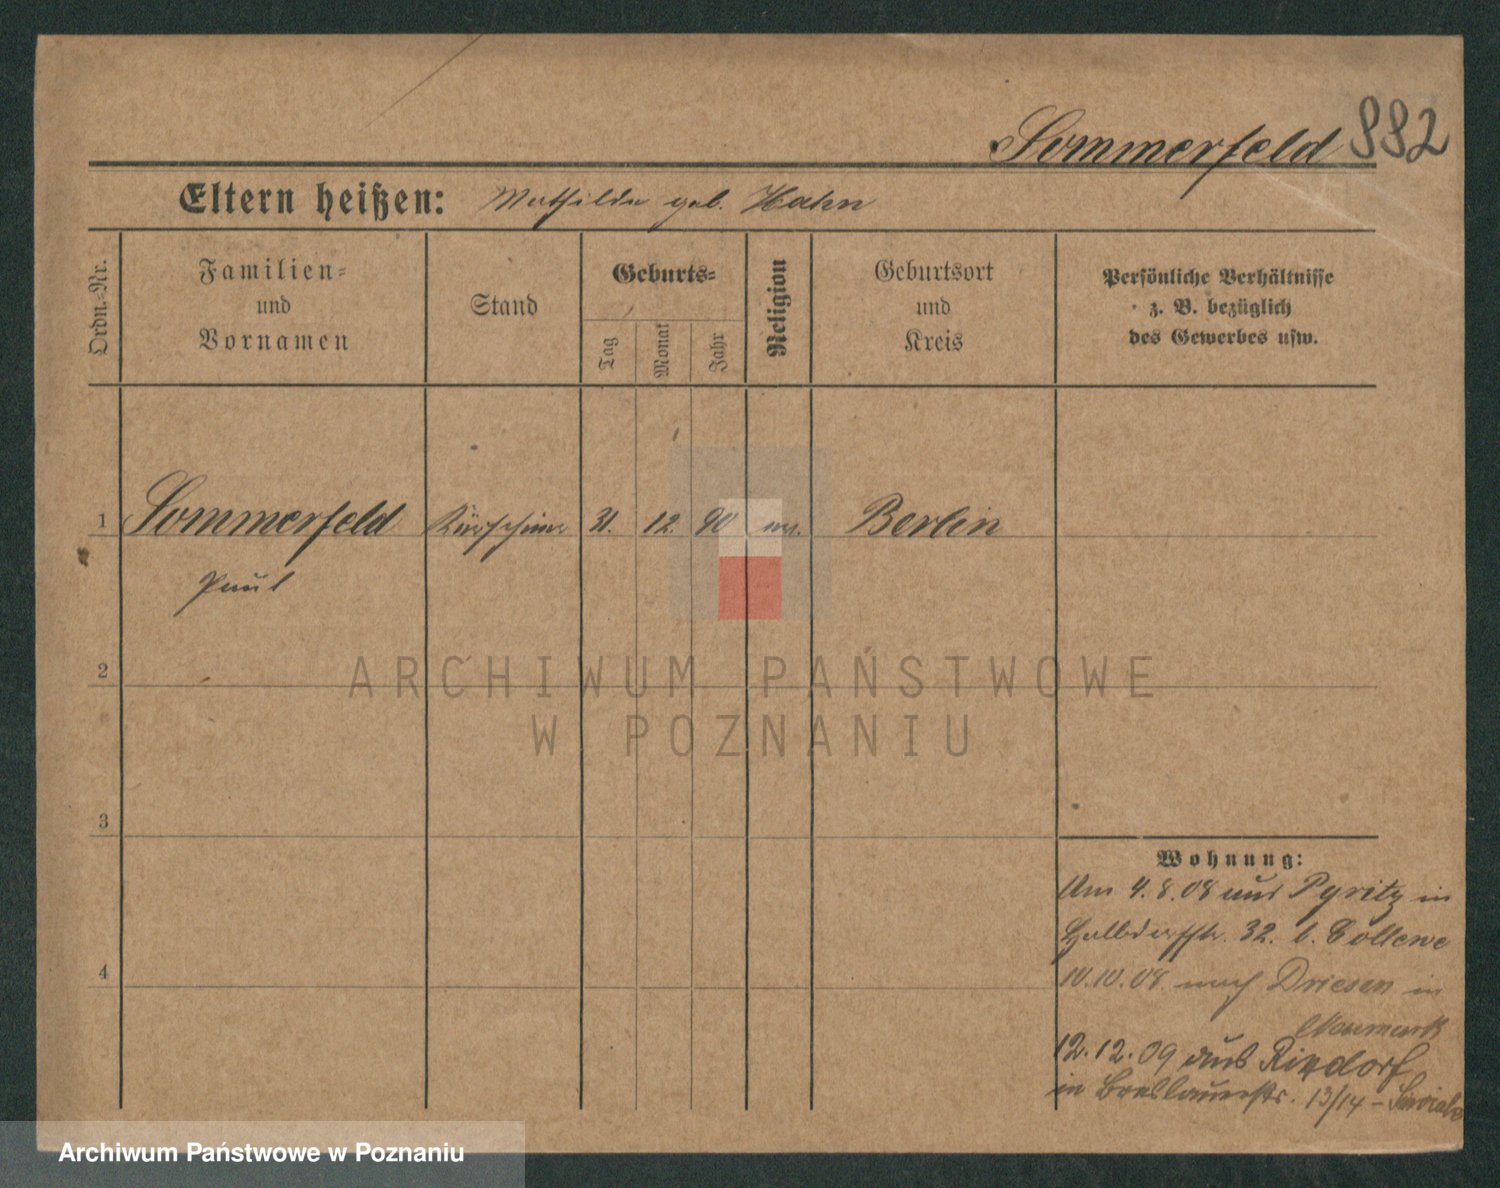 Sommerfeld 882
Eltern heißen: Mathilde geb. Hahn
Ordn.-Nr.
Familien-
und
Vornamen
Stand
Geburts-
Tag
Monat
Jahr
Religion
Geburtsort
und
Kreis
Persönliche Verhältnisse
z. B. bezüglich
des Gewerbes usw.
1 Sommerfeld Kürschner 31. 12. 90 Berlin
Paul
2
ARCHIWUM PAŃSTWOWE
W POZNANIU
3
4
Wohnung:
Am 4.8.08 aus Pyritz in
32. b.
10.10.08. nach Driesen in
Neumark
12.12.09 aus Rixdorf
in Breslauerstr. 13/14 –
Archiwum Państwowe w Poznaniu